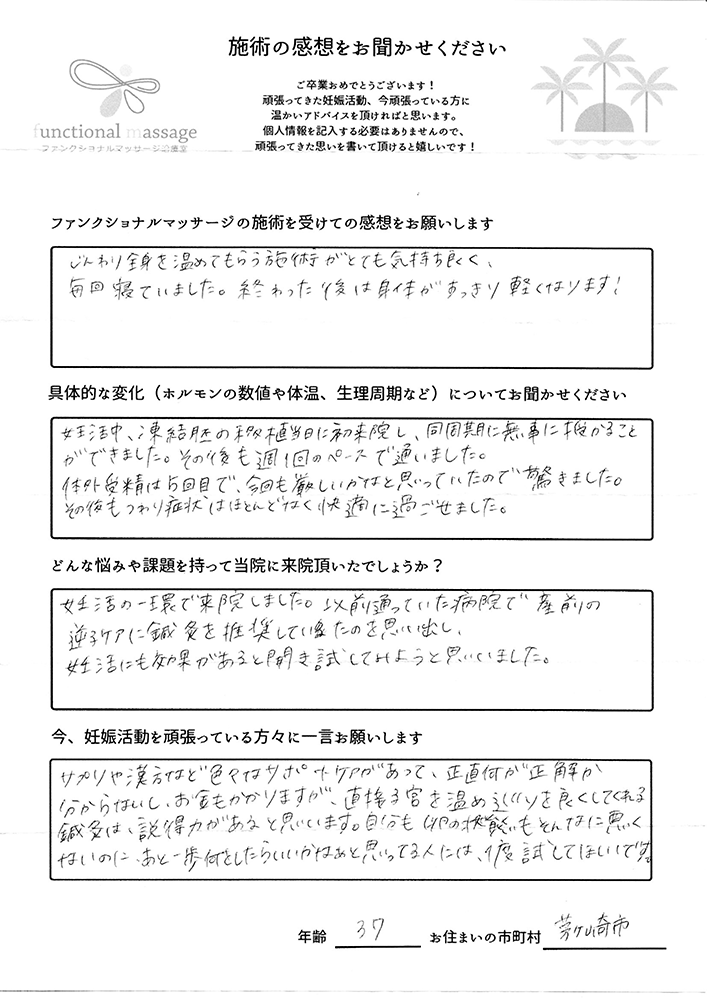 施術の感想をお聞かせください
ご卒業おめでとうございます！
頑張ってきた妊娠活動、今頑張っている方に
温かいアドバイスを頂ければと思います。
個人情報を記入する必要はありませんので、
頑張ってきた思いを書いて頂けると嬉しいです！
functional massage
ファンクショナルマッサージ治療室
ファンクショナルマッサージの施術を受けての感想をお願いします
じんわり全身を温めてもらう施術がとても気持ち良く、
毎回寝ていました。終わった後は身体がすっきり軽くなります！
具体的な変化（ホルモンの数値や体温、生理周期など）についてお聞かせください
妊活中、凍結胚の移植当日に初来院し、同周期に無事に授かること
ができました。その後も週1回のペースで通いました。
体外受精は5回目で、今回も厳しいかなと思っていたので驚きました。
その後もつわり症状はほとんどなく快適に過ごせました。
どんな悩みや課題を持って当院に来院頂いたでしょうか？
妊活の一環で来院しました。以前通っていた病院で産前の
逆子ケアに鍼灸を推奨していたのを思い出し、
妊活にも効果があると聞き試してみようと思いました。
今、妊娠活動を頑張っている方々に一言お願いします
サプリや漢方など色々なサポートケアがあって、正直何が正解か
分からないし、お金もかかりますが、直接子宮を温め巡りを良くしてくれる
鍼灸は、説得力があると思います。自分も卵の状態もそんなに悪く
ないのに、あと一歩何をしたらいいかなぁと思ってる人には、1度試してほしいです。
年齢 37 お住まいの市町村 茅ヶ崎市